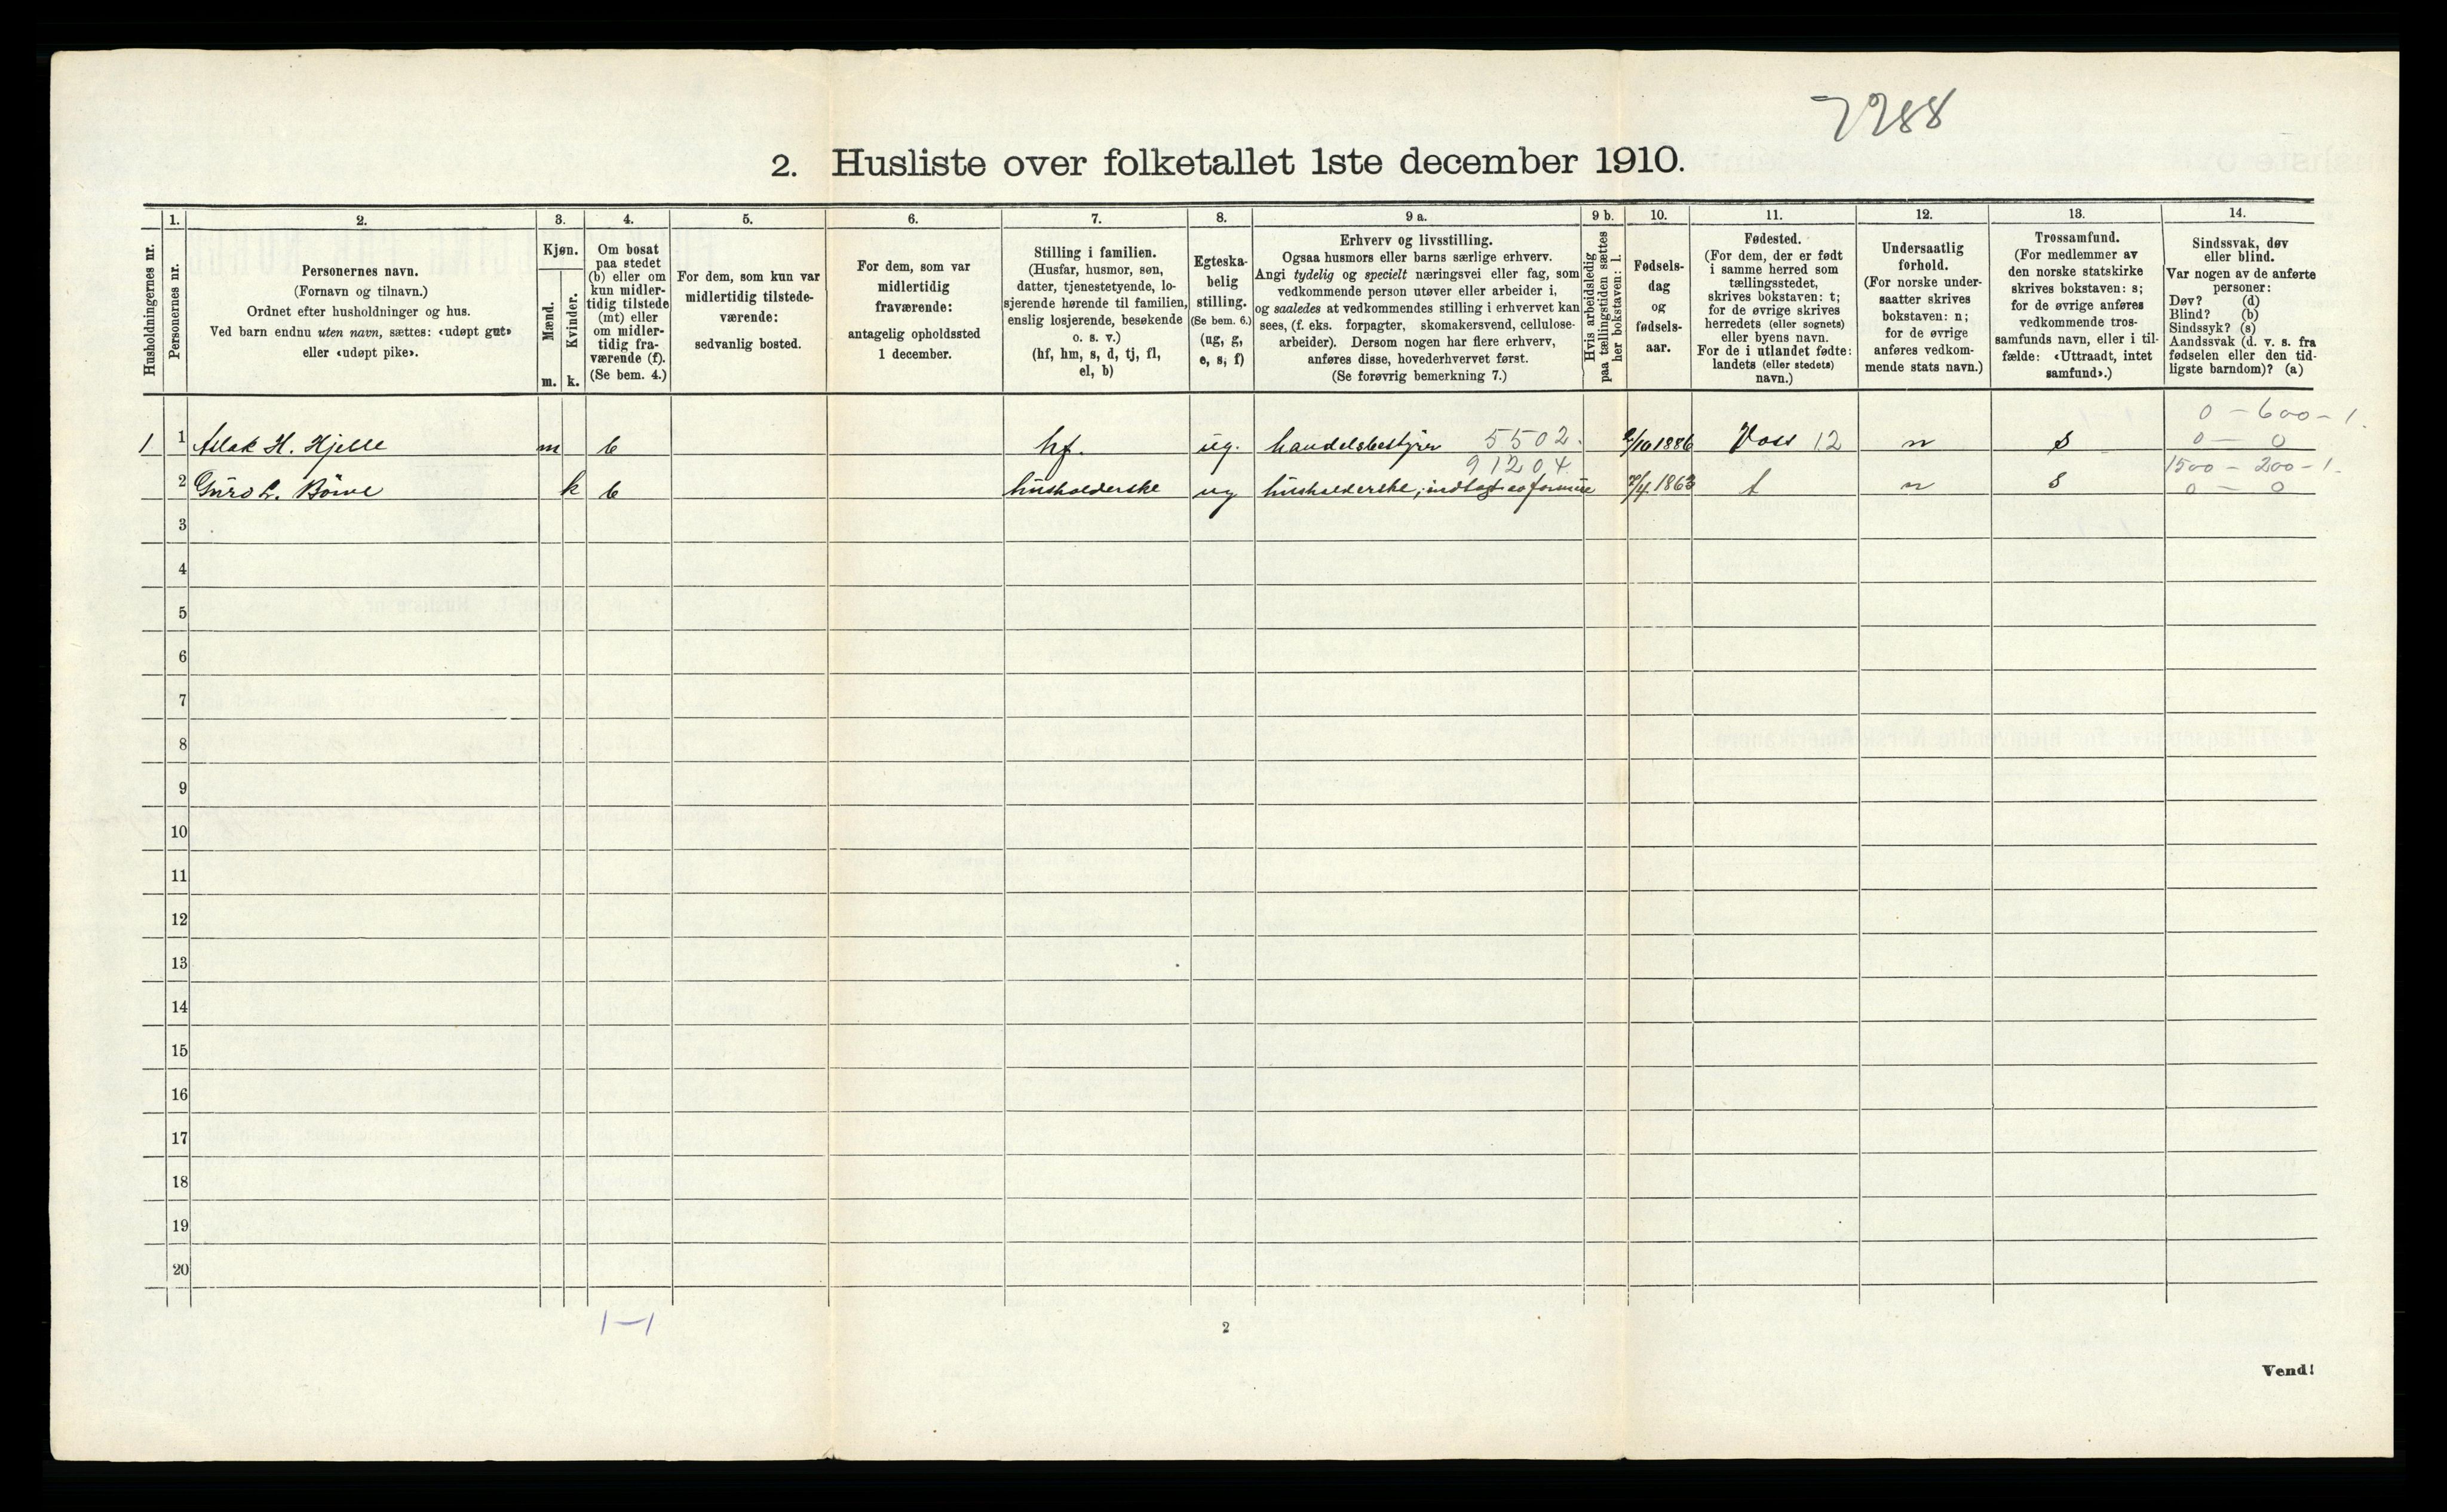 7288
2. Husliste over folketallet 1ste december 1910.
1. 2. 3. 4. 5. 6. 7. 8. 9 a. 9 b. 10. 11. 12. 13. 14.
Husholdningernes nr.
Personernes nr.
Personernes navn.
(Fornavn og tilnavn.)
Ordnet efter husholdninger og hus.
Ved barn endnu uten navn, sættes: «udøpt gut»
eller «udøpt pike».
Kjøn.
Mænd.
Kvinder.
m. k.
Om bosat
paa stedet
(b) eller om
kun midler-
tidig tilstede
(mt) eller
om midler-
tidig fra-
værende (f).
(Se bem. 4.)
For dem, som kun var
midlertidig tilstede-
værende:
sedvanlig bosted.
For dem, som var
midlertidig
fraværende:
antagelig opholdssted
1 december.
Stilling i familien.
(Husfar, husmor, søn,
datter, tjenestetyende, lo-
sjerende hørende til familien,
enslig losjerende, besøkende
o. s. v.)
(hf, hm, s, d, tj, fl,
el, b)
Egteska-
belig
stilling.
(Se bem. 6.)
(ug, g,
e, s, f)
Erhverv og livsstilling.
Ogsaa husmors eller barns særlige erhverv.
Angi tydelig og specielt næringsvei eller fag, som
vedkommende person utøver eller arbeider i,
og saaledes at vedkommendes stilling i erhvervet kan
sees, (f. eks. forpagter, skomakersvend, cellulose-
arbeider). Dersom nogen har flere erhverv,
anføres disse, hovederhvervet først.
(Se forøvrig bemerkning 7.)
Hvis arbeidsledig
paa tællingstiden sættes
her bokstaven: l.
Fødsels-
dag
og
fødsels-
aar.
Fødested.
(For dem, der er født
i samme herred som
tællingsstedet,
skrives bokstaven: t;
for de øvrige skrives
herredets (eller sognets)
eller byens navn.
For de i utlandet fødte:
landets (eller stedets)
navn.)
Undersaatlig
forhold.
(For norske under-
saatter skrives
bokstaven: n;
for de øvrige
anføres vedkom-
mende stats navn.)
Trossamfund.
(For medlemmer av
den norske statskirke
skrives bokstaven: s;
for de øvrige anføres
vedkommende tros-
samfunds navn, eller i til-
fælde: «Uttraadt, intet
samfund».)
Sindssvak, døv
eller blind.
Var nogen av de anførte
personer:
Døv? (d)
Blind? (b)
Sindssyk? (s)
Aandssvak (d. v. s. fra
fødselen eller den tid-
ligste barndom)? (a)
0 - 600 - 1.
1 1 Aslak H. Hjelle m b hf. ug. handelsbestyrer 5502. /10 1886 Voss 12 n s 0 - 0
91204. 1500 - 200 - 1.
2 Guro L. Børve k b husholderske ug husholderske, indtægt av formue /4 1863 t n s 0 - 0
3
4
5
6
7
8
9
10
11
12
13
14
15
16
17
18
19
20
1-1
2
Vend!